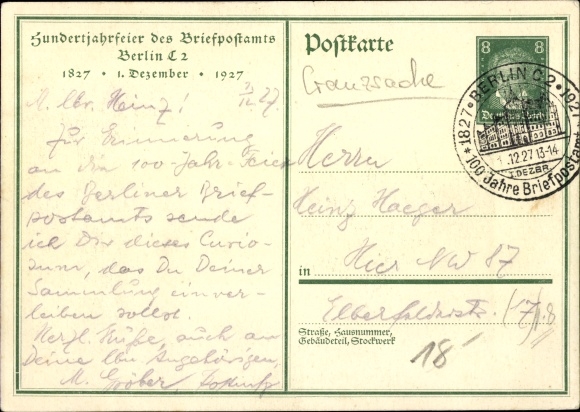 Hundertjahrfeier des Briefpostamts
Berlin C 2
1827 • 1. Dezember • 1927
M. lbr. Heinz! 12.27.
Zur Erinnerung
an die 100-Jahr-Feier
des Berliner Brief-
postamts sende
ich Dir dieses Curio-
sum, das Du Deiner
Sammlung einver-
leiben sollst.
Herzl. Grüße, auch an
Deine lbn Angehörigen,
M. Gröber,
Postkarte
8 8
Deutsches Reich
1827 • BERLIN C2 • 1927
12.27.13-14
1. DEZBR
100 Jahre Briefpostamt
Herrn
Heinz Haeger
in Hier NW 87
Straße, Hausnummer,
Gebäudeteil, Stockwerk
18